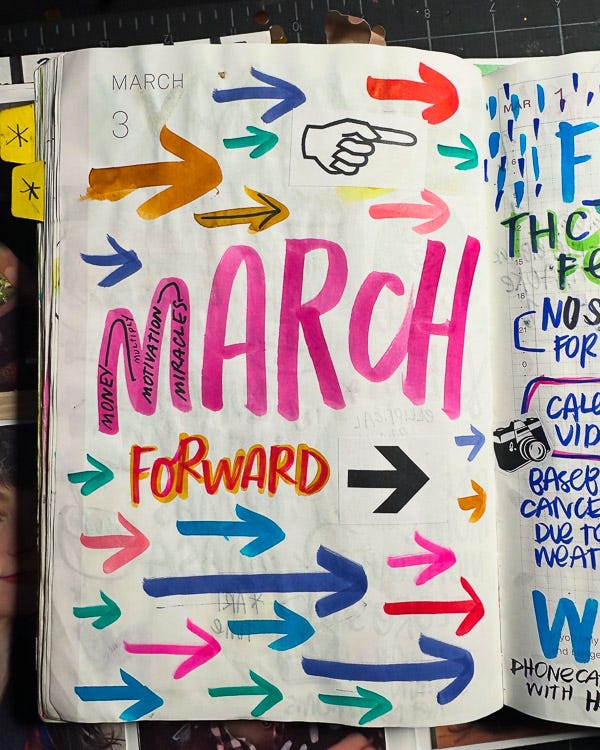 MARCH
3
MARCH
MONEY
MULTIPLY
MOTIVATION
MIRACLES
FORWARD
MAR 1
F
THC
FE
NOS
FOR
CALE
VID
BASEB
CANCE
DUE TO
WEAT
W
PHONECA
WITH H